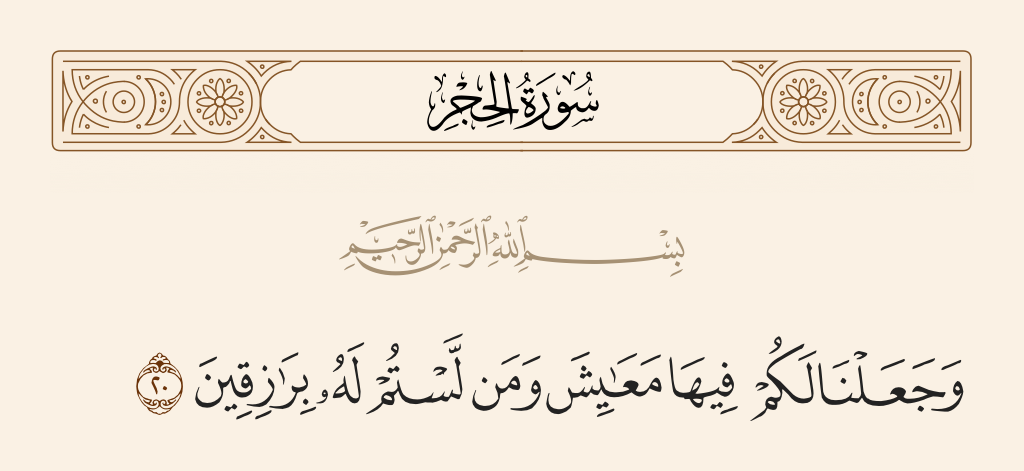 سُورَةُ الحِجْرِ
بِسْمِ ٱللَّهِ ٱلرَّحْمَٰنِ ٱلرَّحِيمِ
وَجَعَلْنَا لَكُمْ فِيهَا مَعَٰيِشَ وَمَن لَّسْتُمْ لَهُۥ بِرَٰزِقِينَ ٢٠